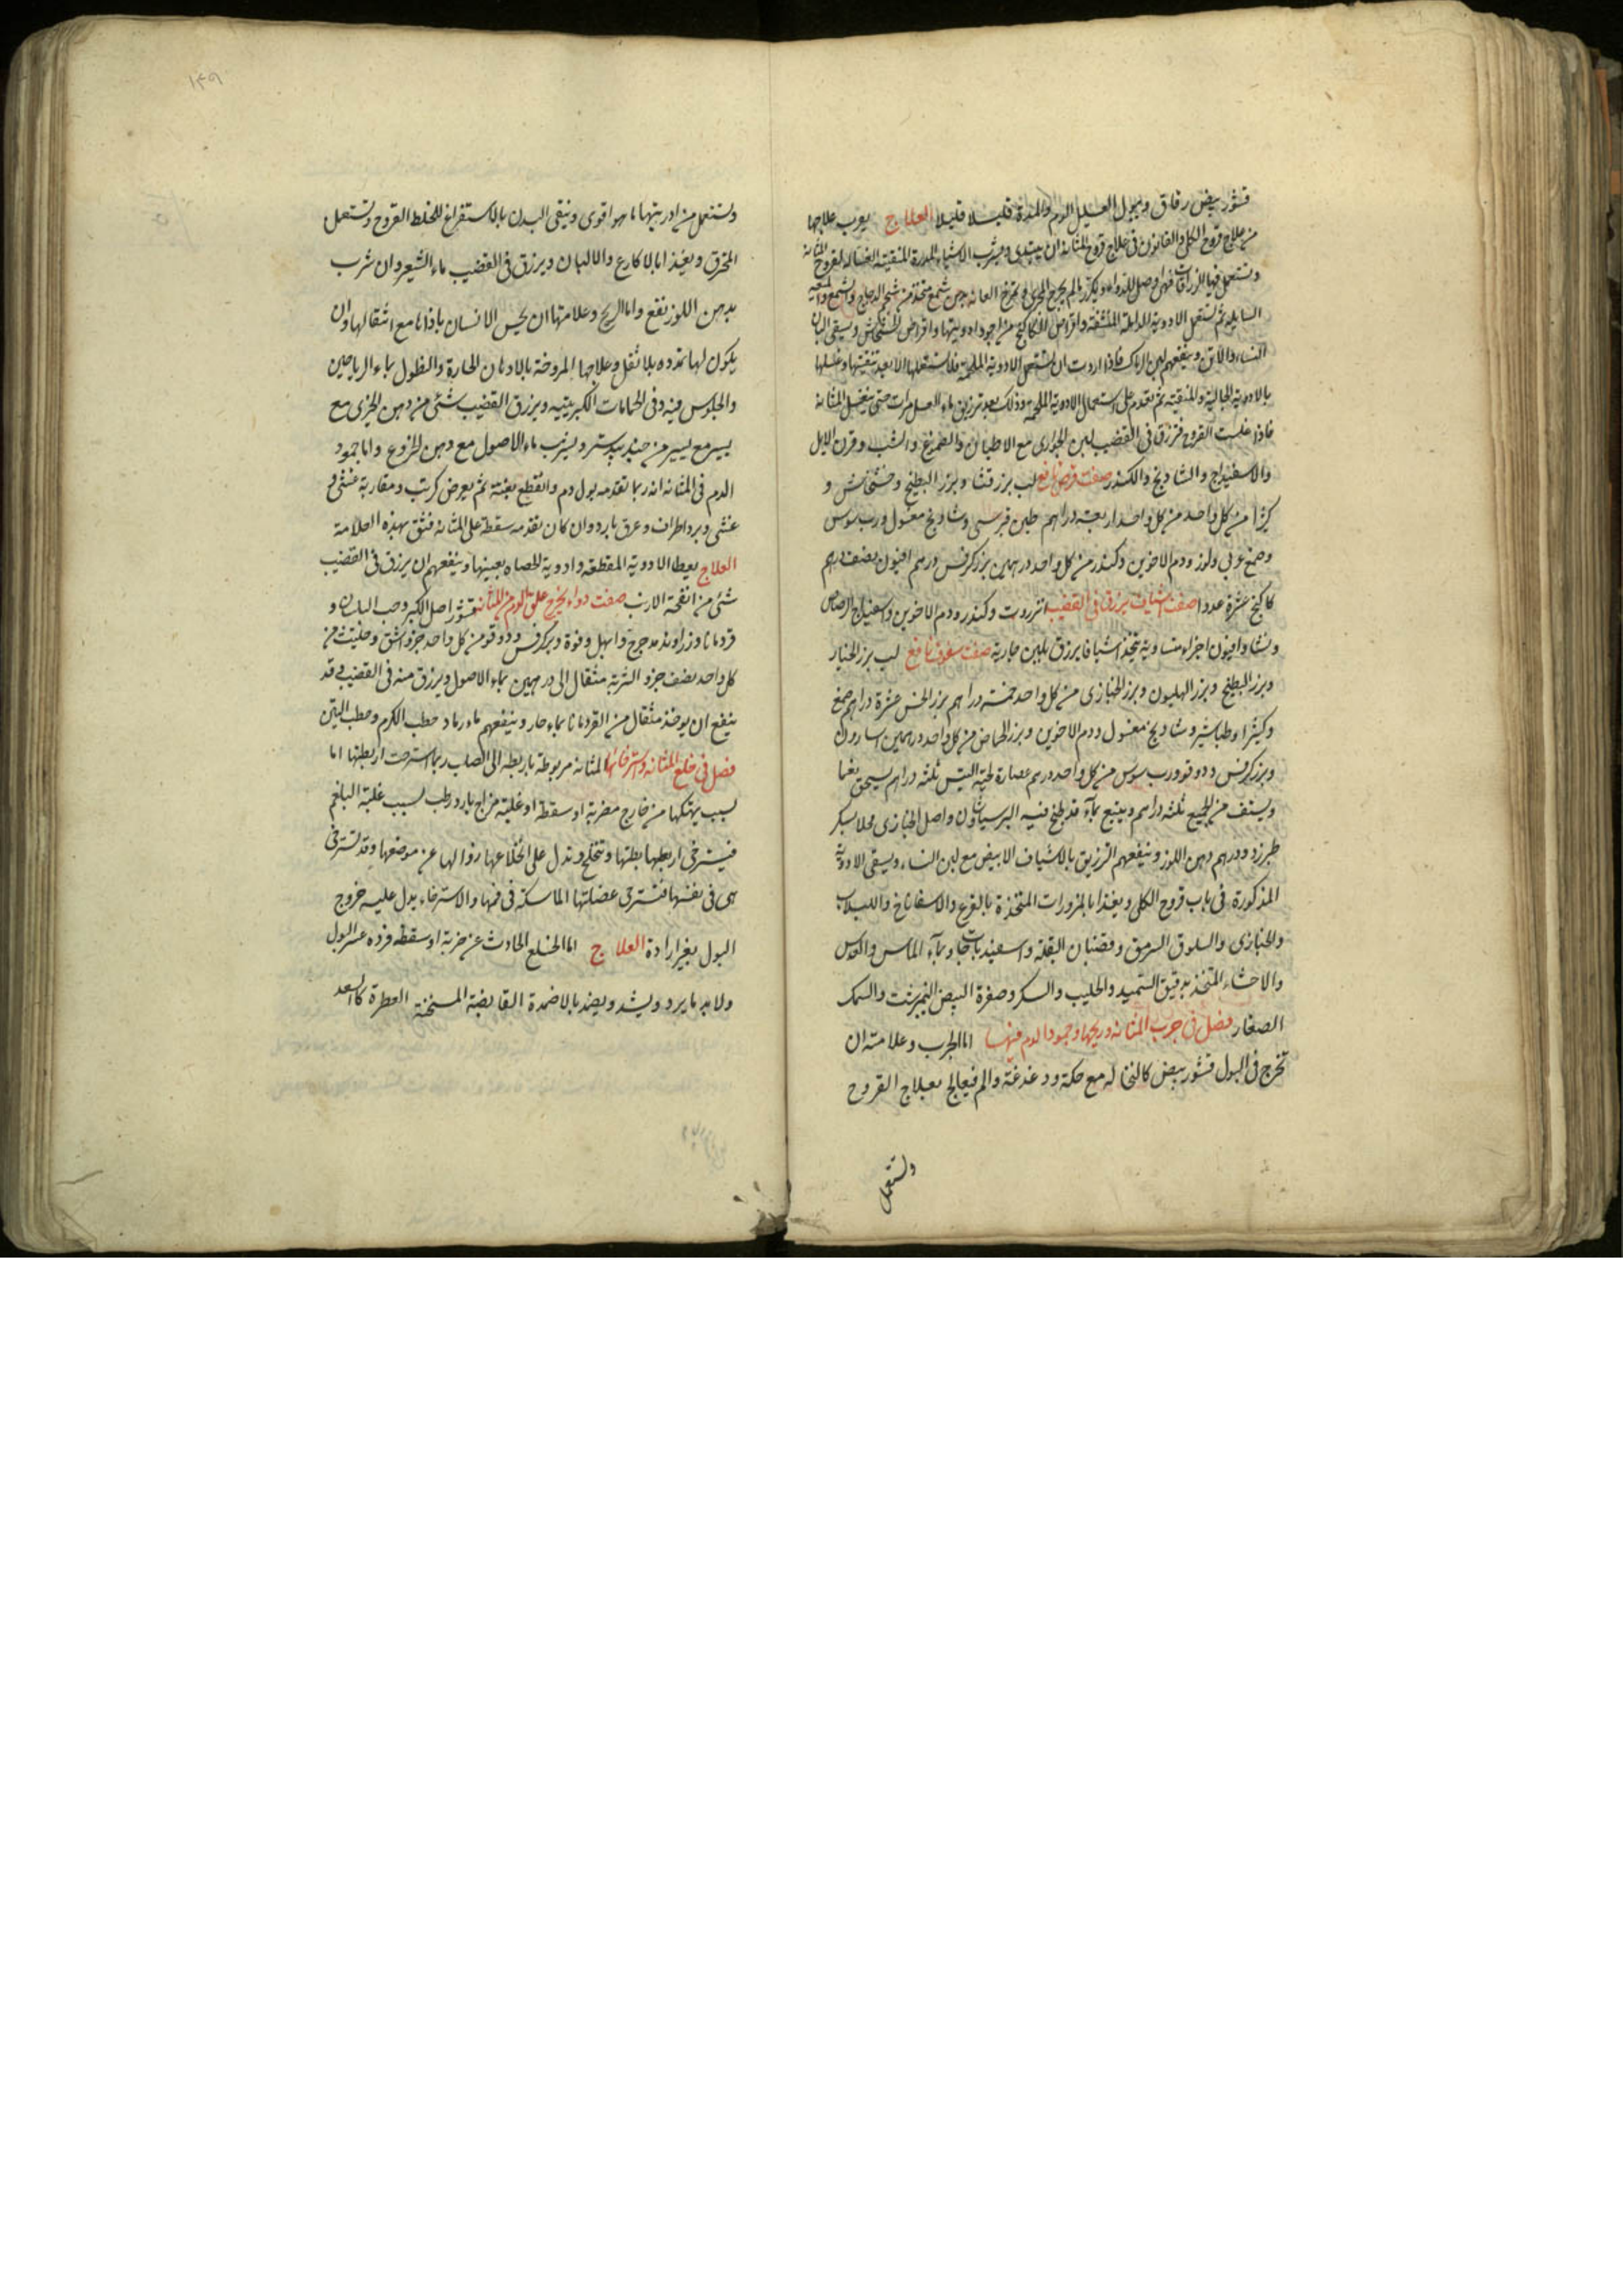 قشور بيض رقاق ويبول العليل الدم والمدة قليلا قليلا العلاج يقرب علاجها
من علاج قروح الكلى والقانون في علاج قروح المثانة ان يبتدى ويشرب الاشياء المدرة المنقية الغسالة لقروح المثانة
وتستعمل فيها الزراقات فهى اوصل للدواء ويكرر مالم يجرح المجرى وتمرخ العانة بدهن شمع متخذ من شحم الدجاج والشمع والميعه
السايلة ثم تستعمل الادوية المدملة المنشفة واقراص الكاكنج من اجود ادويتها واقراص الخشخاش ويسقى البان
النساء والاتن وينفعهم لبن الرماك فاذا اردت ان تستعمل الادوية الملحمة فلا تستعملها الا بعد تنقيتها وغسلها
بالادوية الجالية والمنقية ثم تقدم على استعمال الادوية الملحمة وذلك بعد تزريق ماء العسل مرات حتى يغسل المثانة
فاذا غسلت القروح فتزرق في القضيب لبن الجوارى مع الاطيان والصموغ والشب وقرن الايل
والاسفيداج والشادنج والكندر صفت قرص نافع لب بزر قثا وبزر البطيخ وخشخاش و
كثيرا من كل واحد من كل واحد اربعة دراهم طين قبرسى وشادنج مغسول ورب سوس
وصمغ عربى ولوز ودم الاخوين وكندر من كل واحد درهمين بزر كرفس درهم افيون نصف درهم
كاكنج عشرة عددا صفت اشياف يزرق في القضيب انزروت وكندر ودم الاخوين واسفيداج الرصاص
ونشا وافيون اجزاء متساوية يتخذ اشيافا يزرق بلبن جارية صفت سفوف نافع لب بزر الخيار
وبزر البطيخ وبزر الهليون وبزر الخبازى من كل واحد خمسة دراهم بزر الخس عشرة دراهم صمغ
وكثيرا وطباشير وشادنج مغسول ودم الاخوين وبزر الحماض من كل واحد درهمين اسارون
وبزر كرفس ودوقو ورب سوس من كل واحد درهم عصارة لحية التيس ثلثة دراهم يسحق نعما
ويستف من الجميع ثلثة دراهم ويتبع بماء قد طبخ فيه البرسياوشان واصل الخبازى محلا بسكر
طبرزد ودرهم دهن اللوز وينفعهم التزريق بالاشياف الابيض مع لبن النساء ويسقى الادوية
المذكورة في باب قروح الكلى ويغذا بالمزورات المتخذة بالقرع والاسفاناخ واللبلاب
والخبازى والسلوق السرمق وقضبان البقلة واسفيذباجات بماء الماس والعدس
والاحشاء المتخذ بدقيق السميد والحليب والسكر وصفرة البيض النيمبرشت والسمك
الصغار فصل في جرب المثانة وريحها وجمود الدم فيها اما الجرب وعلامته ان
تخرج في البول قشور بيض كالنخالة مع حكة ودغدغة والم فيعالج بعلاج القروح
وتستعمل
١٣٩
وتستعمل من ادويتها ما هو اقوى وينقى البدن بالاستفراغ للخلط القروح وتستعمل
المخرق ويغذا بالاكارع والالبان ويزرق في القضيب ماء الشعير وان شرب
بدهن اللوز نفع واما الريح وعلامتها ان يحس الانسان باذاها مع اثقالها وان
يكون لها تمدد بلا ثقل وعلاجها المروخة بالادهان الحارة والنطول بماء الرياحين
والجلوس فيه وفى الحمامات الكبريتيه ويزرق القضيب شئ من دهن الخيرى مع
يسير مع يسير من جندبيدستر ويشرب ماء الاصول مع دهن الخروع واما جمود
الدم في المثانة انه ربما تقدمه بول دم وانقطع بغتة ثم يعرض كرب ومقاربة غشى و
غشى وبرد اطراف وعرق بارد وان كان تقدمه سقطة على المثانة فثق بهذه العلامة
العلاج يعطا الادوية المقطعة وادوية الحصاه بعينها وينفعهم ان يزرق في القضيب
شئ من انفحة الارنب صفت دواء يخرج علق الدم من المثانة قشور اصل الكبر وحب البان و
قردمانا وزراوند مدحرج وابهل وفوة وبزر كرفس ودوقو من كل واحد جزو اشق وحلتيت من
كل واحد نصف جزو الشربة مثقال الى درهمين بماء الاصول ويزرق منه في القضيب وقد
ينفع ان يوخذ مثقال من القردمانا بماء حار وينفعهم ماء رماد حطب الكرم وحطب التين
فصل في خلع المثانة واسترخائها المثانة مربوطة باربطة الى الصلب ربما استرخت اربطتها اما
لسبب يهتكها من خارج مضربة او سقطة او غلبة مزاج بارد رطب لسبب غلبة البلغم
فيسترخى اربطتها بطتها وتنخلع وتدل على انخلاعها زوالها عن موضعها وقد تسترخى
هى في نفسها فتسترخى عضلتها الماسكة في فمها والاسترخاء يدل عليه خروج
البول بغير ارادة العلاج اما الخلع الحادث عن ضربة او سقطة فرده عسر البول
ولا بد ما يرد ويشد ويضمد بالاضمدة القابضة المسخنة العطرة كالسعد